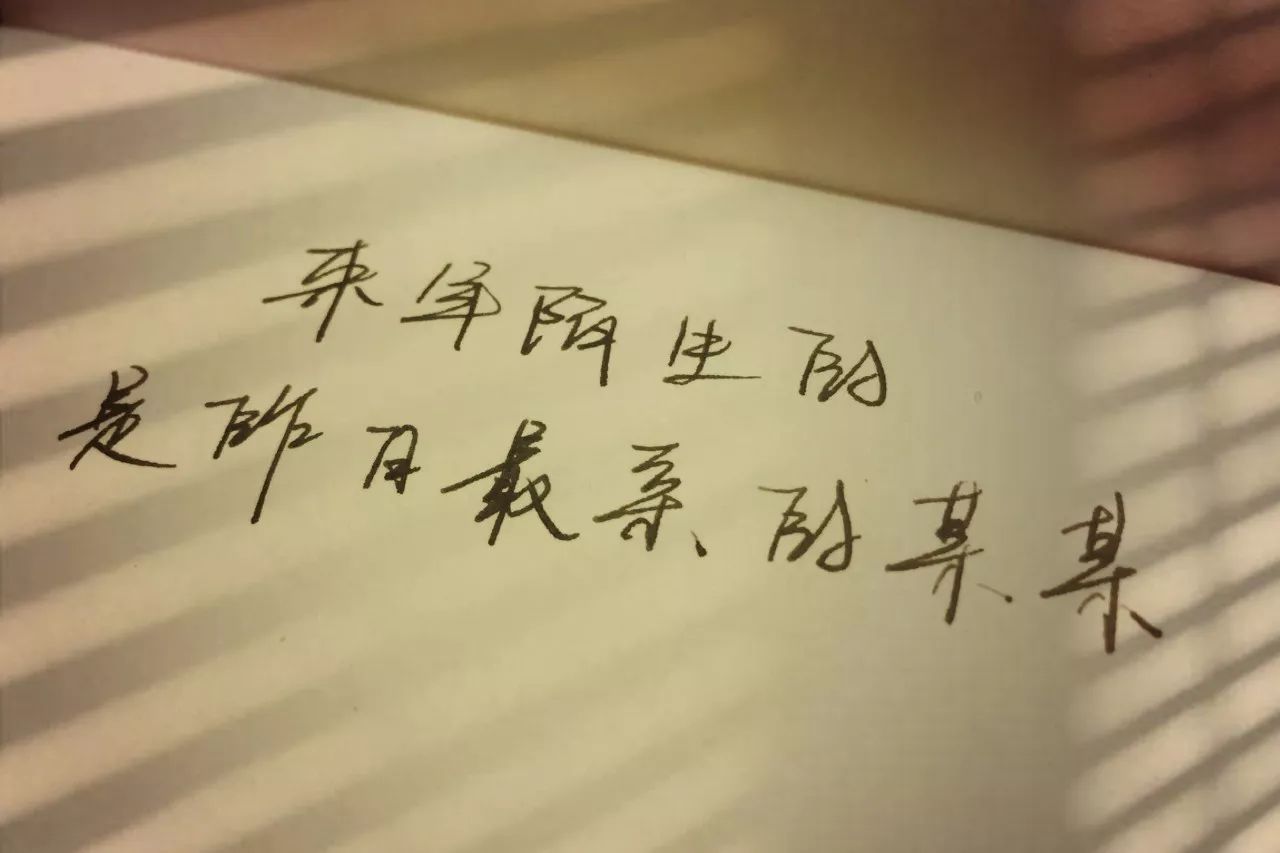 来年陌生的
是昨日最亲的某某